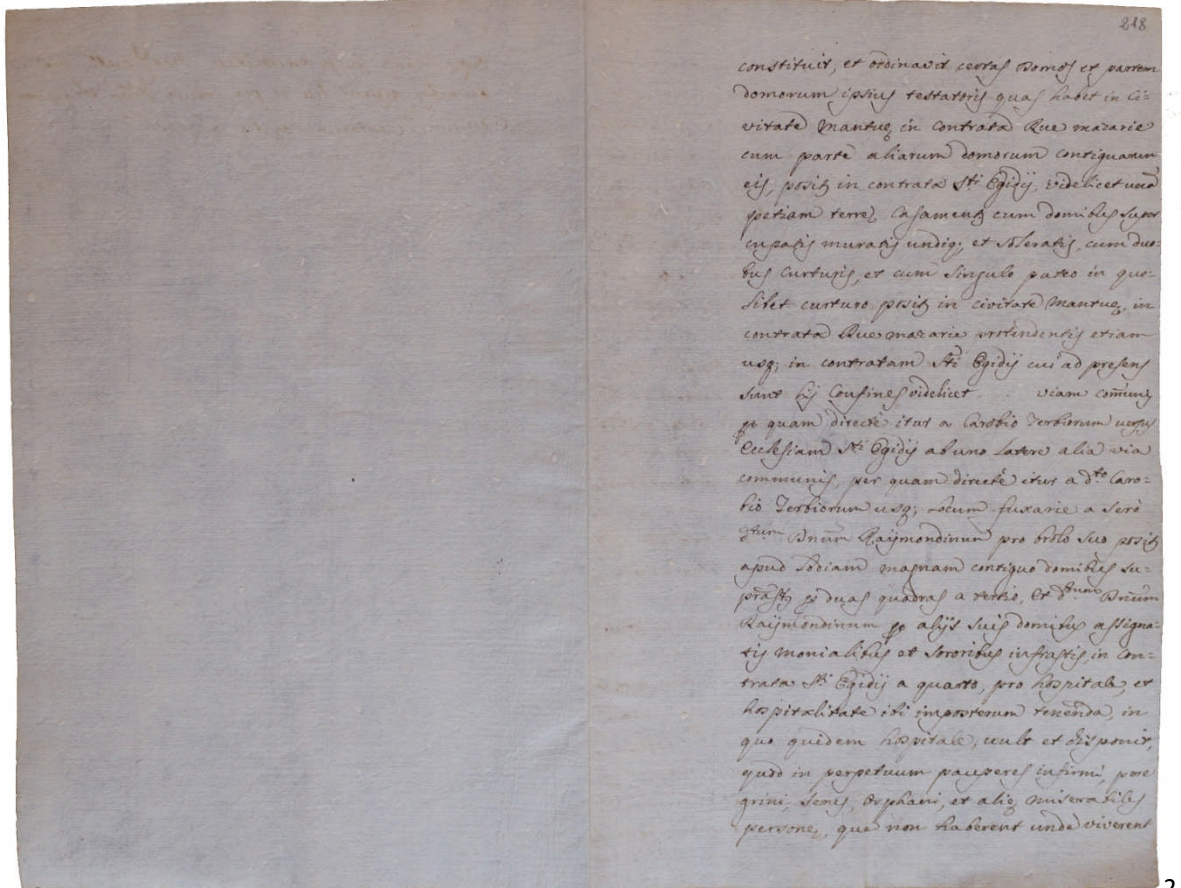 218
constituit, et ordinavit certas Domos et partem
domorum ipsius testatoris quas habet in Ci=
vitate Mantuę in contrata Rue mazarie
cum parte aliarum domorum contiguarum
eis, positis in contrata Sti Egidij, videlicet unã
petiam terrę Casamentę cum domibus super
cupatis muratis undiq; et soleratis, cum duo=
bus Curturis, et cum singulo puteo in quo=
libet curturo posit in civitate Mantuę, in
contrata Rue mazarie protendentis etiam
usq; in contratam Sti Egidij cui ad presens
sunt hij Confines videlicet . . viam com̃unis
p quam directè itur a Carobio Terbiorum versus
Ecclesiam Sti Egidij ab uno Latere alia via
communis, per quam directè itur a dto Caro=
bio Terbiorum usq; Locum fuxarie a serò
dtum Dnũm Raijmondinum pro brolo suo posit
apud Podiam magnam contiguo domibus su=
prast p duas quadras a tertio, et dtum Dnũm
Raijmondinum p alijs suis domibus assigna=
tis monialibus et sororibus infrastis, in Con=
trata Sti Egidij a quarto, pro hospitale, et
hospitalitate ibi imposterum tenenda, in
quo quidem hospitale, vult et disponit,
quod in perpetuum pauperes infirmi, pere
grini, senes, Orphani, et alię miserabiles
personę, que non haberent unde viverent
2